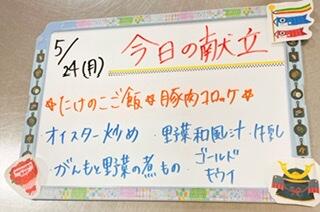 5/24(月)
今日の献立
☆たけのこご飯 ☆豚肉コロッケ
オイスター炒め ・野菜和風汁 ・牛乳
・がんもと野菜の煮もの ・ゴールド
キウイ